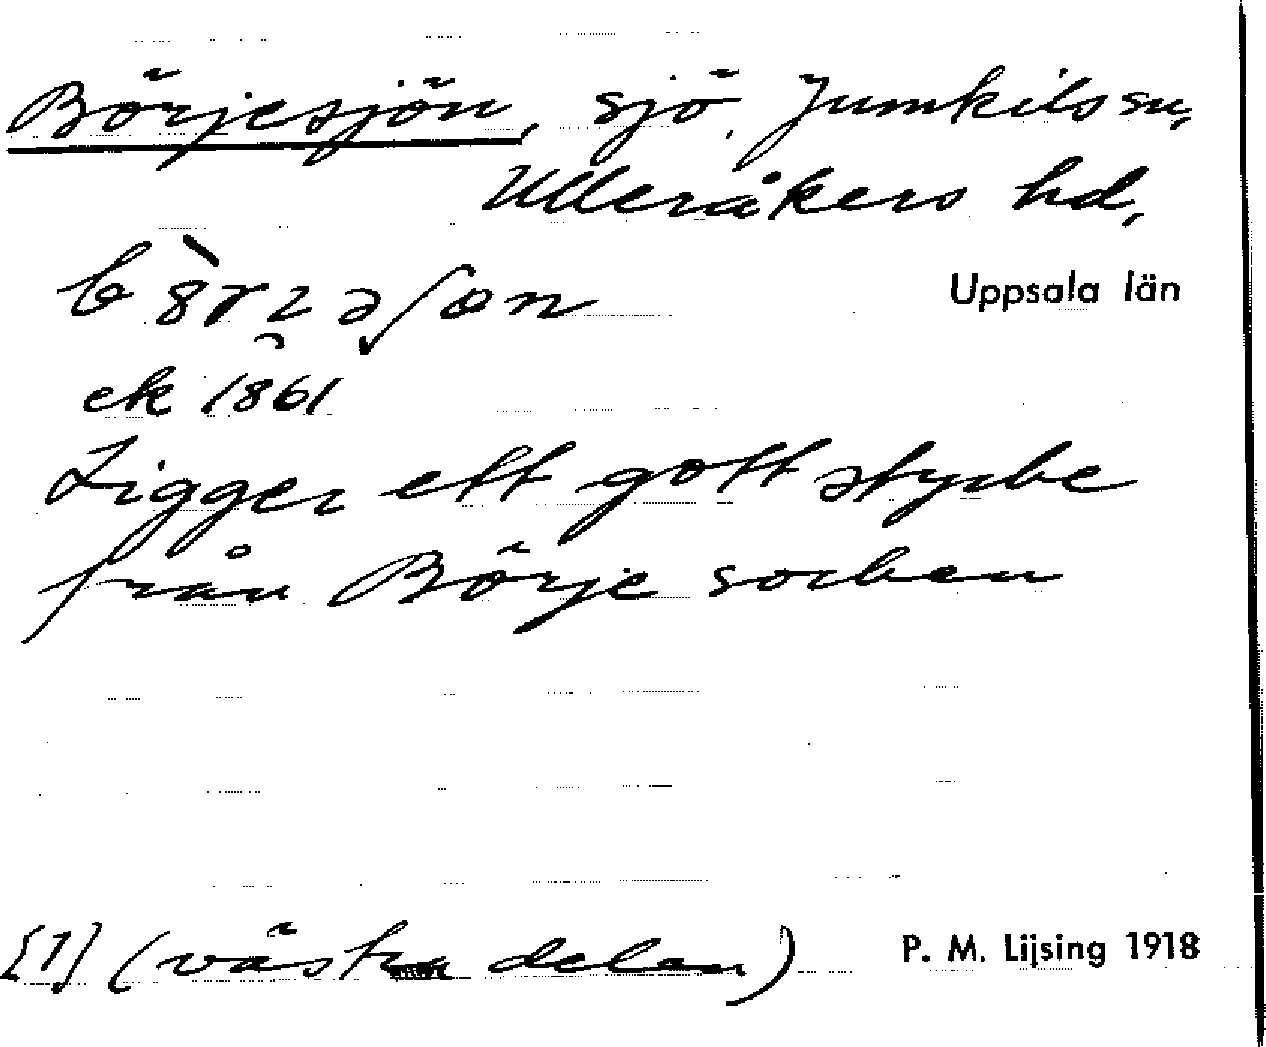 Börjesjön, sjö, Jumkils sn,
Ulleråkers hd,
Uppsala län
ek 1861
Ligger ett gott stycke
från Börje socken
[1] (västra delen)
P. M. Lijsing 1918